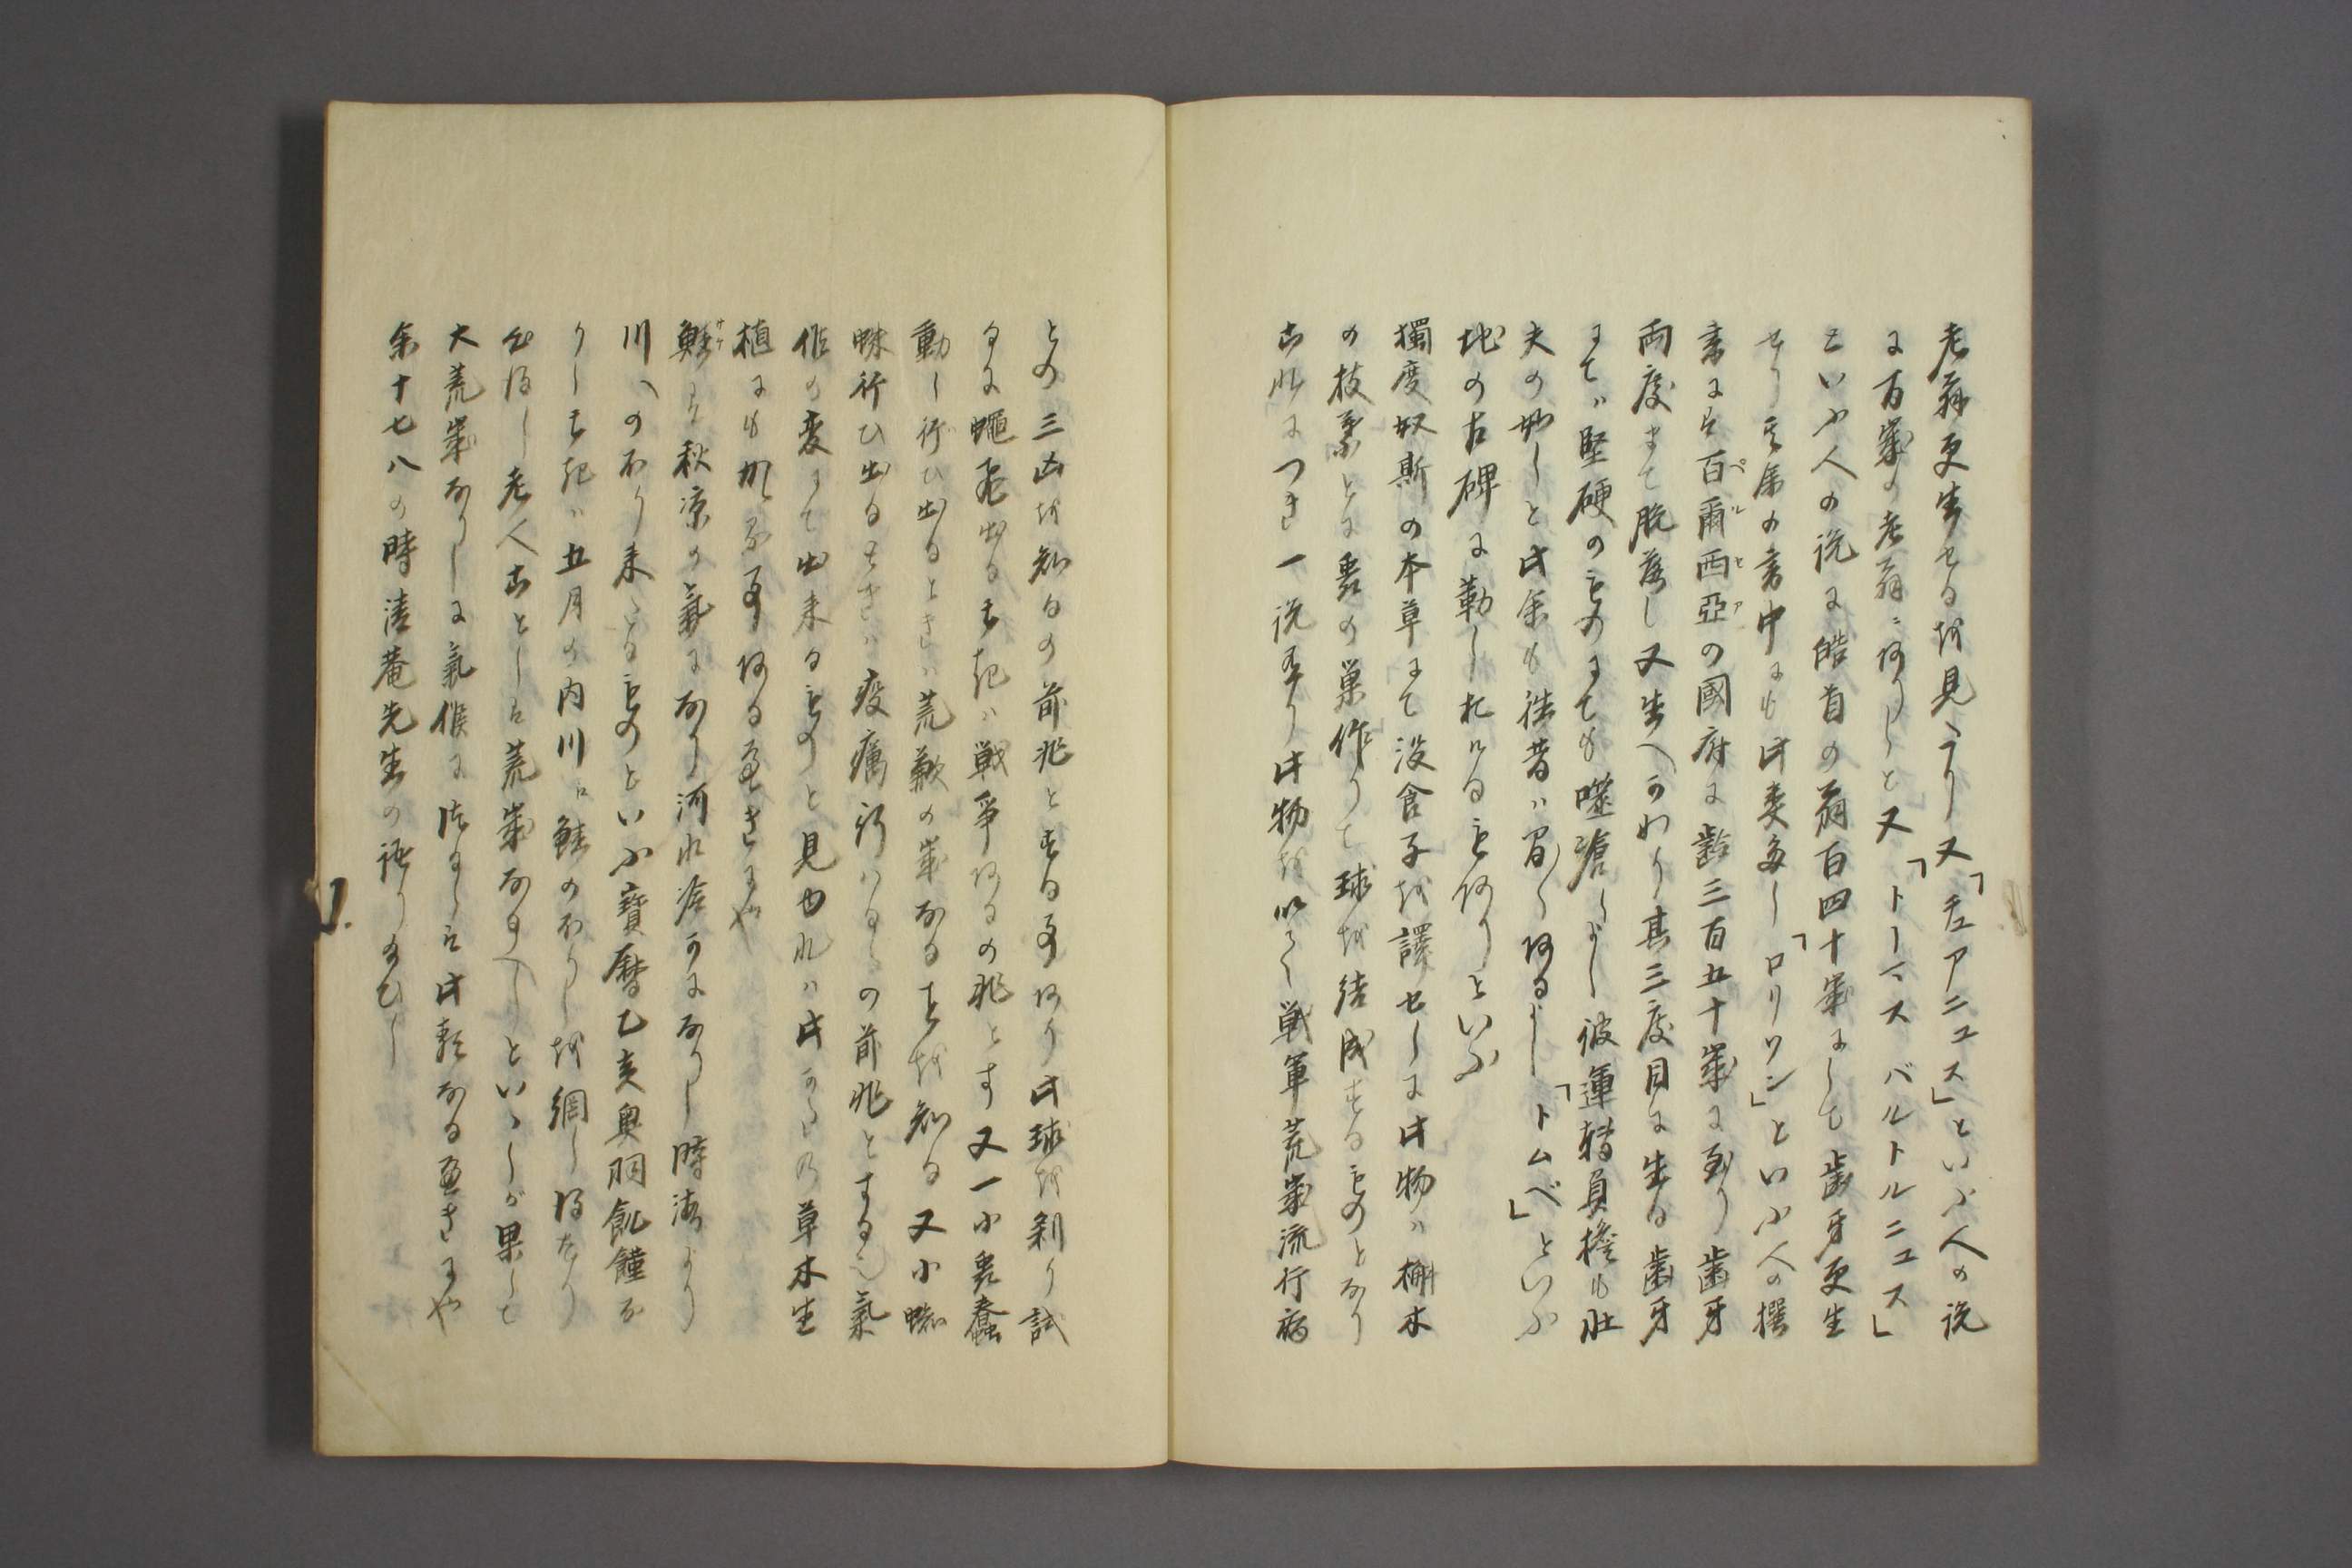 老翁更生せるを見たり又「チュアニュス」といふ人の説
に百歳の老翁にありしと又「トーマス バルトルニュス」
といふ人の説に皓首の翁百四十歳にして歯牙更生
せり其餘の書中にも此類多し「ロリソン」といふ人の撰
書には百爾西亜の國府に齢三百五十歳に至り歯牙
両度まて脱落し又生へかわり其三度目に生る歯牙
にては堅硬のものにても噬㕮しよし彼運轉負擔も壮
夫の如しと此余も往昔は間々あるよし「トムベ」といふ
地の古碑に勒し在けるもありといふ
獨度奴斯の本草にて没食子を譯せしに此物は槲木
の枝葉とに蟲の巣作りて球を結成するものとなり
これにつき一説有り此物を以て戦軍荒歳流行病
との三凶を知るの前兆とする事あり此球を剖り試
るに蠅飛出るときは戦爭あるの兆とす又一小蟲蠢
動し行ひ出るときは荒歉の歳なることを知る又小蜘
蛛行ひ出るときは疫癘行はるゝの前兆とすると也氣
作の変にて出来るものと見ゆれは此からの草木生
植にも如斯事あるへきにや
鮭は秋涼の氣になり河水冷かになりし時海より
川への不り来たるものといふ寶暦乙亥奥羽飢饉な
りしときは五月の内川に鮭の不りしを網し得たり
や得し老人ことしは荒歳なるへしといゝしが果して
大荒歳なりしに氣候に沈ましは此類なるへきにや
余十七八の時清菴先生の語り玉ひし